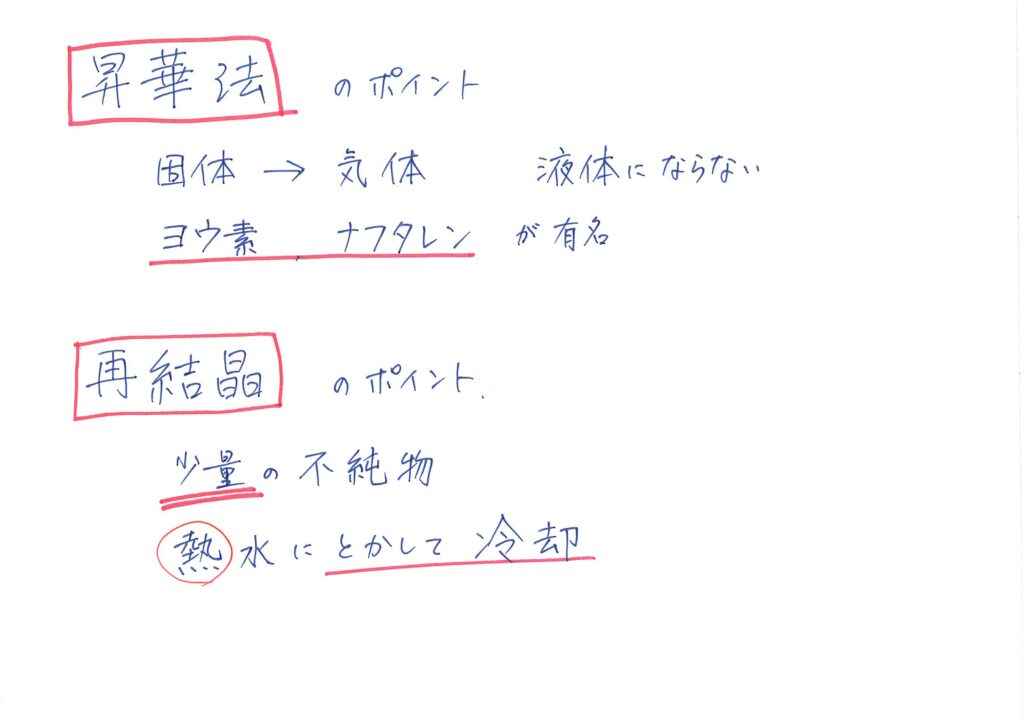 昇華法 のポイント
固体 → 気体 液体にならない
ヨウ素 , ナフタレン が有名
再結晶 のポイント.
少量の不純物
熱水にとかして冷却